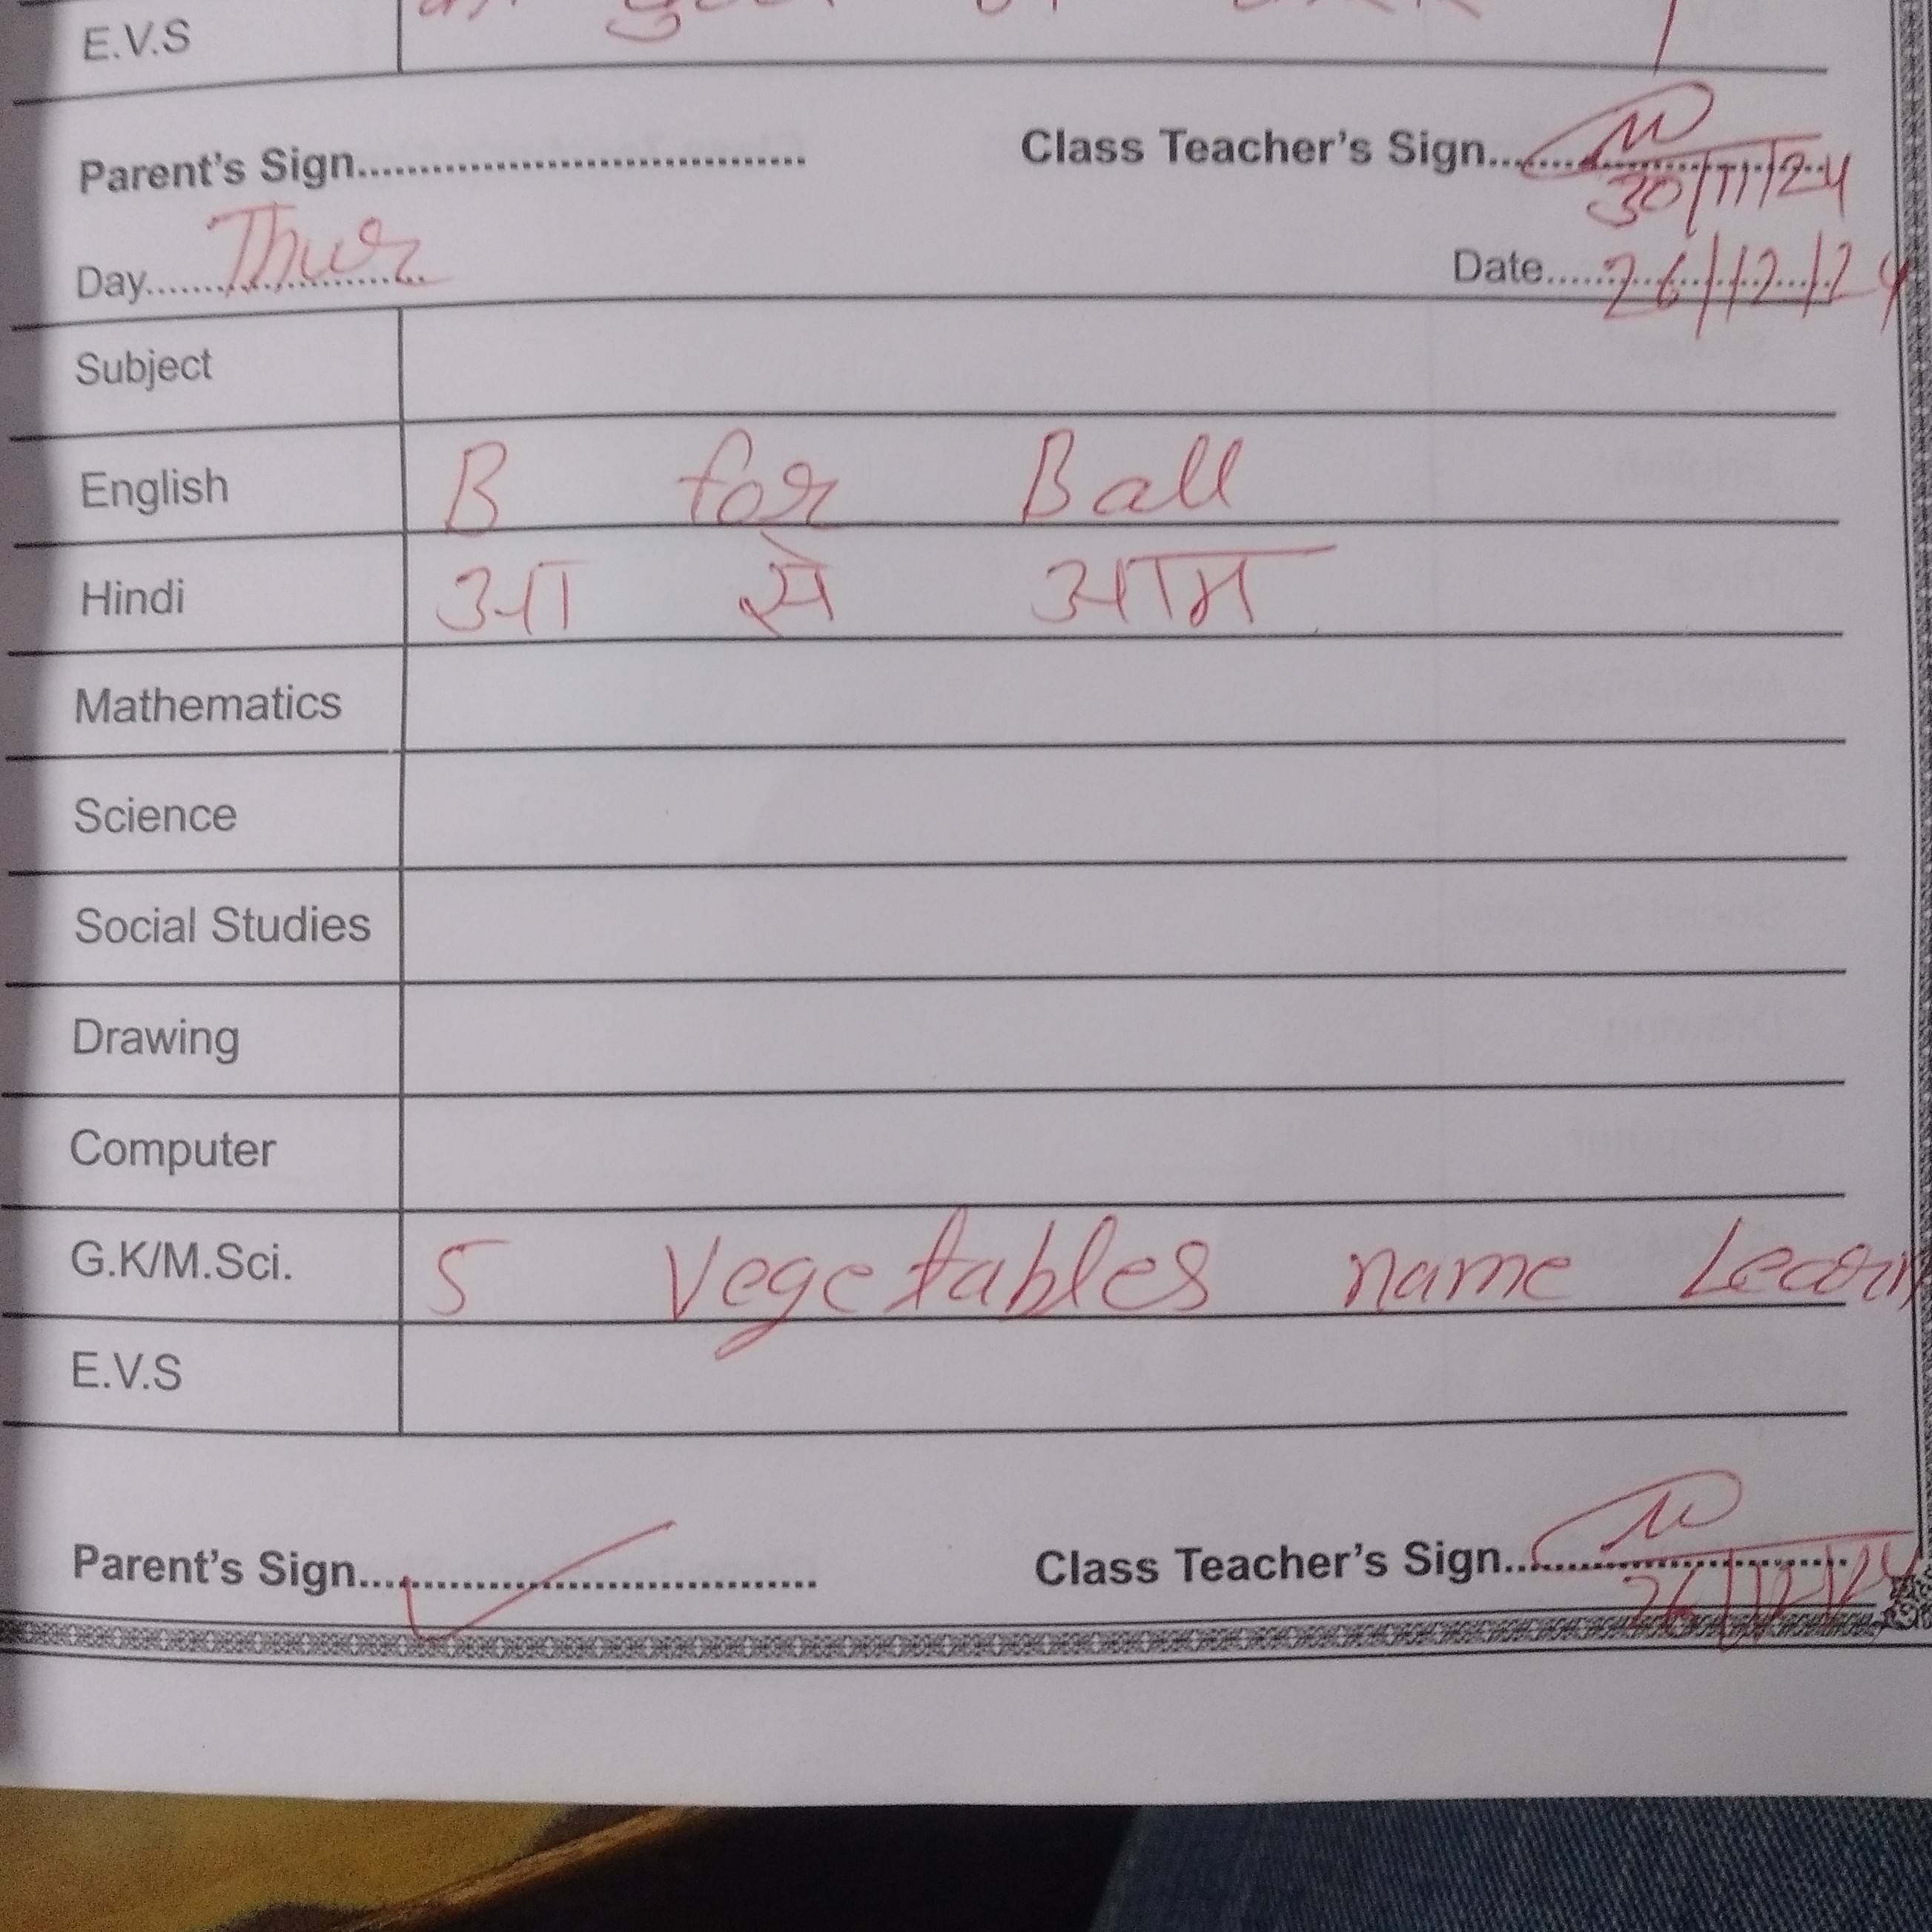 E.V.S
Parent's Sign................................. Class Teacher's Sign..............................
30/11/24
Day.......Thur.......... Date.....26/12/24
Subject
English B for Ball
Hindi आ से आम
Mathematics
Science
Social Studies
Drawing
Computer
G.K/M.Sci. 5 Vegetables name Learn
E.V.S
Parent's Sign................................. Class Teacher's Sign..............................
26/12/24